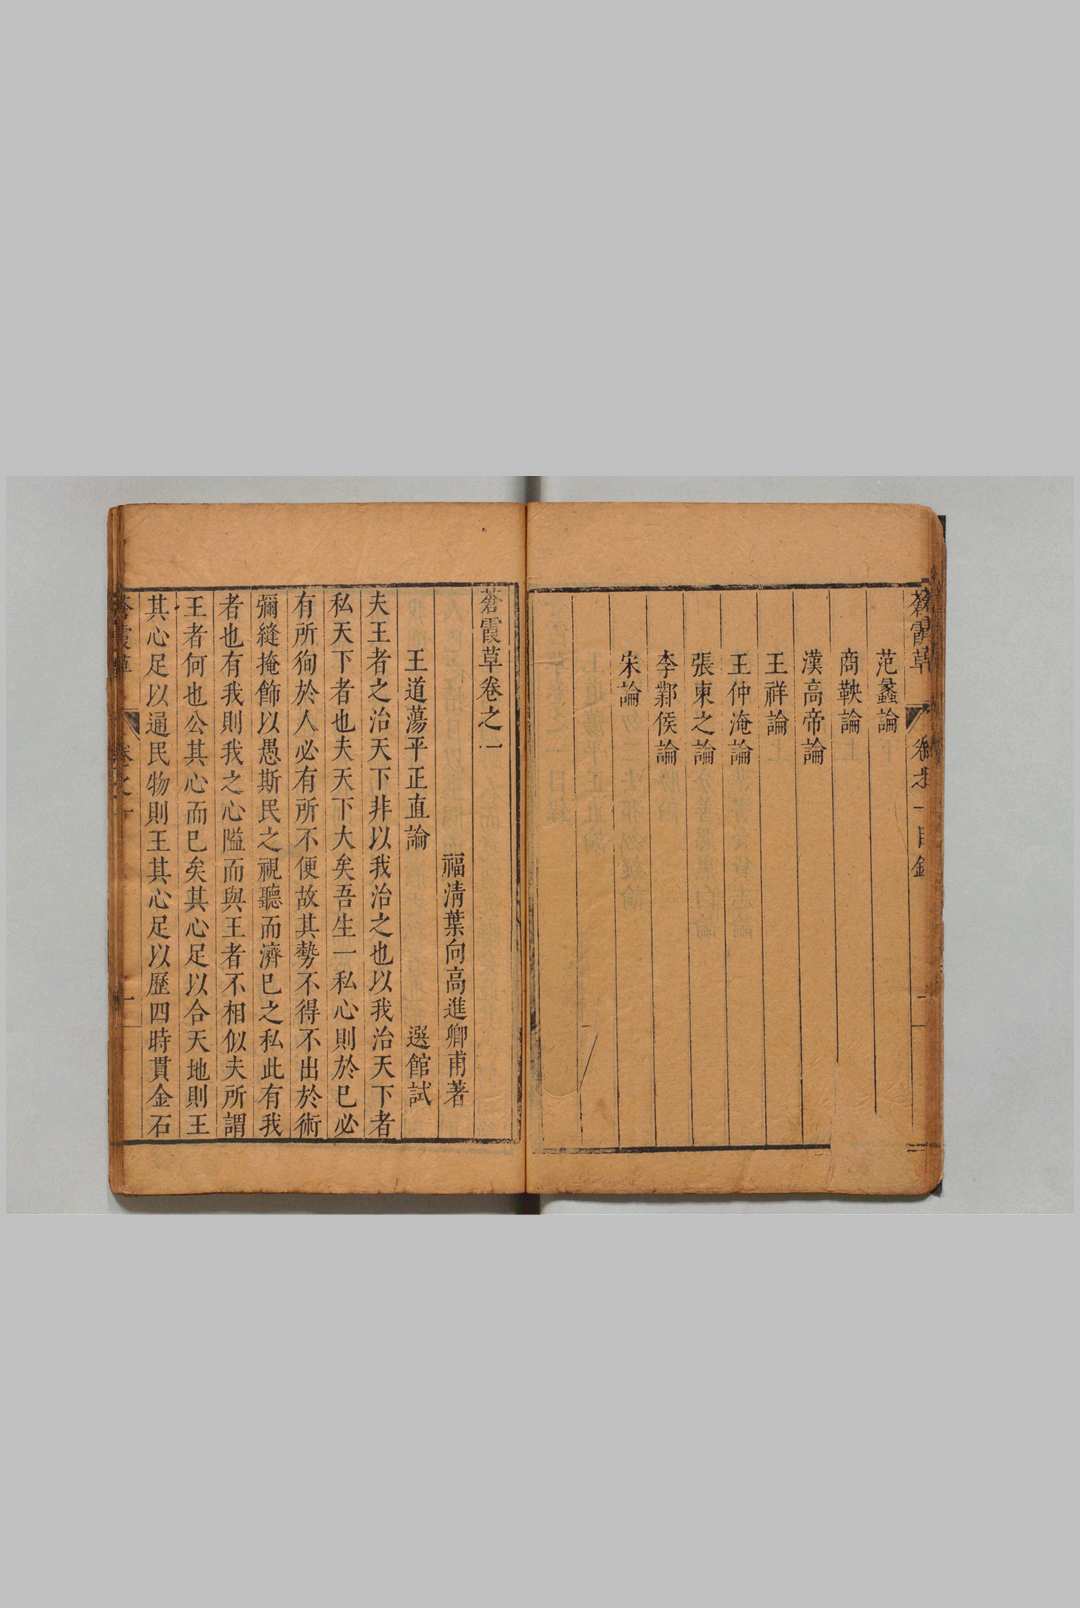 蒼霞草
目錄
范蠡論
商鞅論
漢高帝論
王祥論
王仲淹論
張柬之論
李鄴侯論
宋論
蒼霞草卷之一
福清葉向高進卿甫著
王道蕩平正直論 選館試
夫王者之治天下非以我治之也以我治天下者
私天下者也夫天下大矣吾生一私心則於已必
有所徇於人必有所不便故其勢不得不出於術
彌縫掩飾以愚斯民之視聽而濟已之私此有我
者也有我則我之心隘而與王者不相似夫所謂
王者何也公其心而已矣其心足以合天地則王
其心足以通民物則王其心足以歷四時貫金石
蒼霞草
卷之一